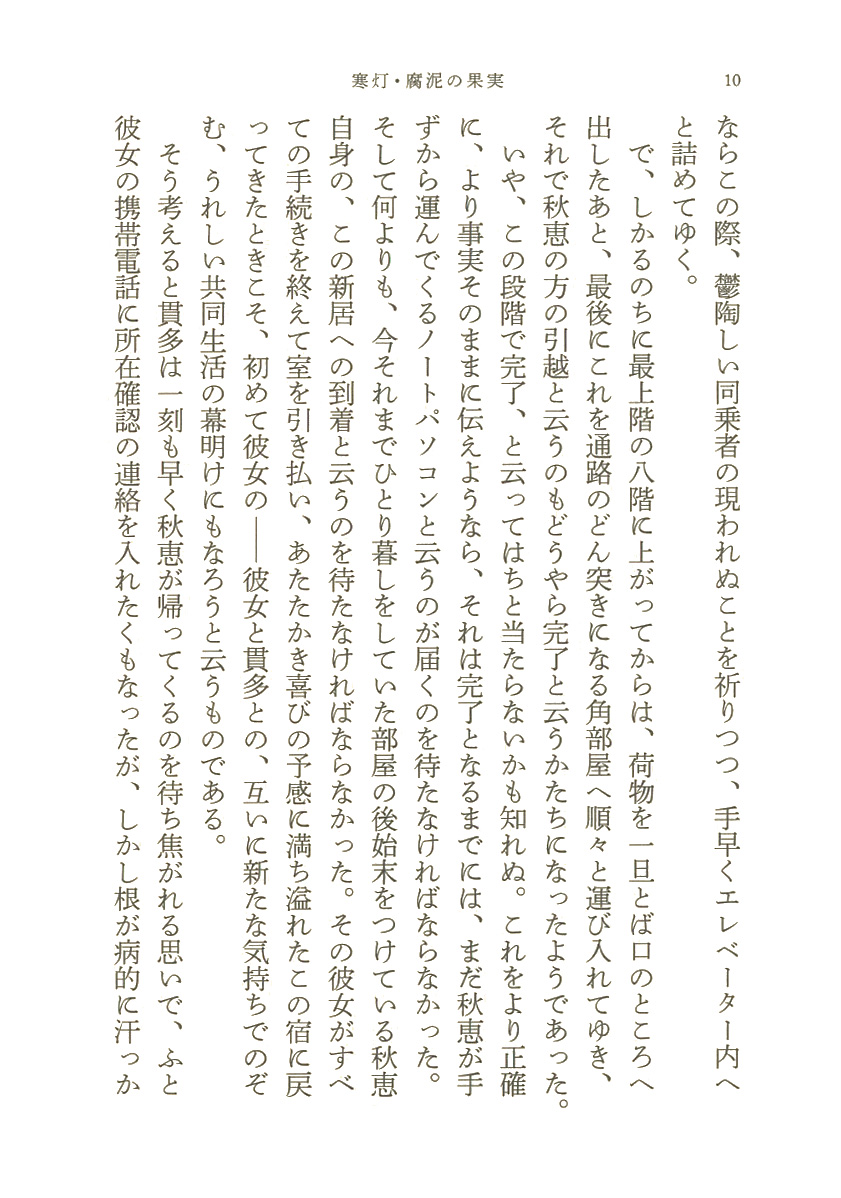 寒灯・腐泥の果実
10
ならこの際、鬱陶しい同乗者の現われぬことを祈りつつ、手早くエレベーター内へ
と詰めてゆく。
で、しかるのちに最上階の八階に上がってからは、荷物を一旦とば口のところへ
出したあと、最後にこれを通路のどん突きになる角部屋へ順々と運び入れてゆき、
それで秋恵の方の引越と云うのもどうやら完了と云うかたちになったようであった。
いや、この段階で完了、と云ってはちと当たらないかも知れぬ。これをより正確
に、より事実そのままに伝えようなら、それは完了となるまでには、まだ秋恵が手
ずから運んでくるノートパソコンと云うのが届くのを待たなければならなかった。
そして何よりも、今それまでひとり暮しをしていた部屋の後始末をつけている秋恵
自身の、この新居への到着と云うのを待たなければならなかった。その彼女がすべ
ての手続きを終えて室を引き払い、あたたかき喜びの予感に満ち溢れたこの宿に戻
ってきたときこそ、初めて彼女の――彼女と貫多との、互いに新たな気持ちでのぞ
む、うれしい共同生活の幕明けにもなろうと云うものである。
そう考えると貫多は一刻も早く秋恵が帰ってくるのを待ち焦がれる思いで、ふと
彼女の携帯電話に所在確認の連絡を入れたくもなったが、しかし根が病的に汗っか